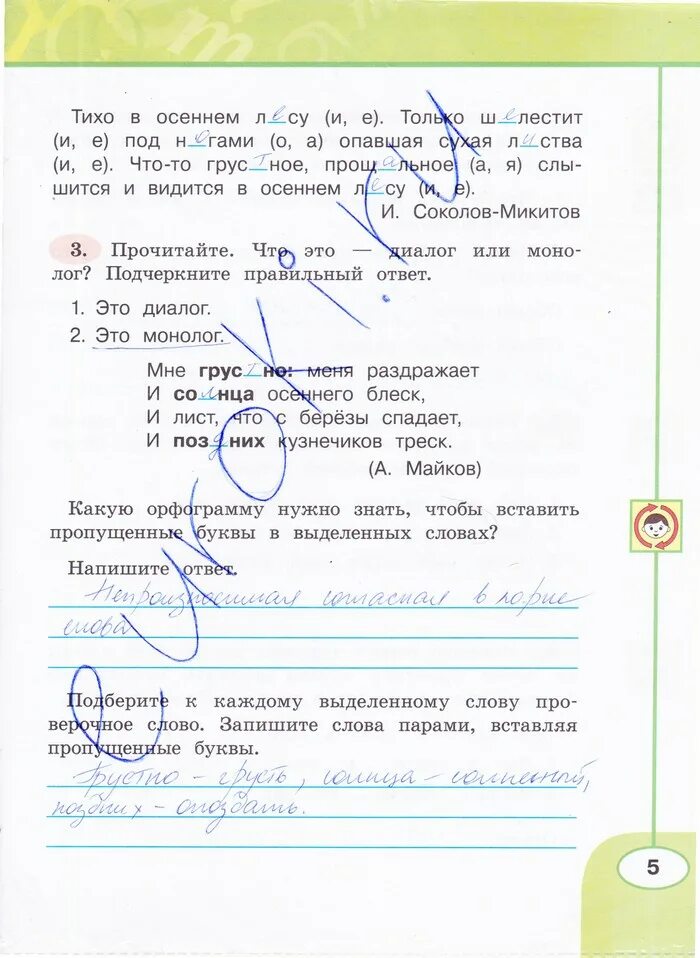 Тихо в осеннем лесу (и, е). Только шелестит
(и, е) под ногами (о, а) опавшая сухая листва
(и, е). Что-то грустное, прощальное (а, я) слы-
шится и видится в осеннем лесу (и, е).
И. Соколов-Микитов
3. Прочитайте. Что это — диалог или моно-
лог? Подчеркните правильный ответ.
1. Это диалог.
2. Это монолог.
Мне грустно: меня раздражает
И солнца осеннего блеск,
И лист, что с берёзы спадает,
И поздних кузнечиков треск.
(А. Майков)
Какую орфограмму нужно знать, чтобы вставить
пропущенные буквы в выделенных словах?
Напишите ответ.
Непроизносимая согласная в корне
слова
Подберите к каждому выделенному слову про-
верочное слово. Запишите слова парами, вставляя
пропущенные буквы.
Грустно – грусть, солнца – солнечный,
поздних – опоздать.
5
euroki.ru